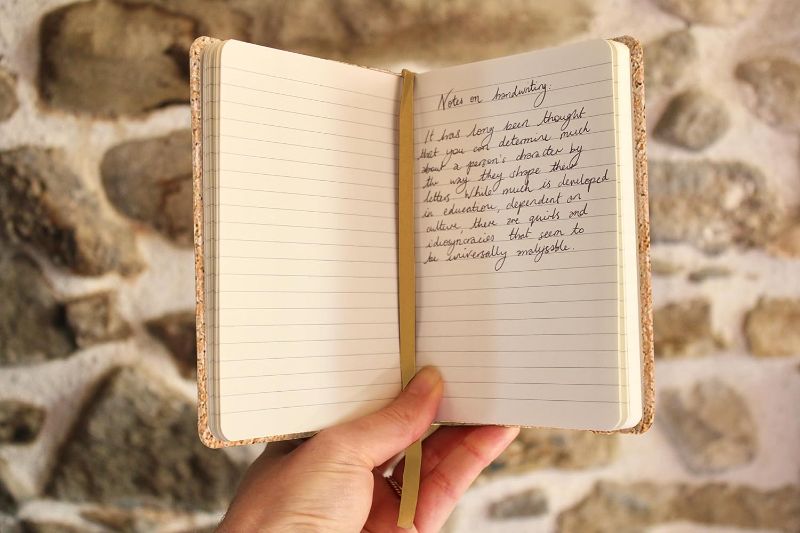 Notes on handwriting:
It has long been thought
that you can determine much
about a person's character by
the way they shape their
letters. While much is developed
in education, dependent on
culture, there are quirks and
idiosyncracies that seem to
be universally analysable.